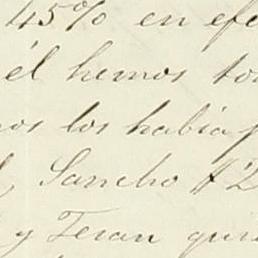 45% en efe
él hemos to
nos los había p
Sancho $2
y Teran qui